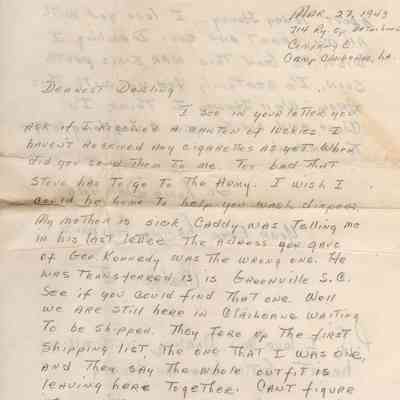 Mar. 27, 1943
714 Ry. Op. Detachment
Company C
Camp Claiborne, La.
Dearest Darling
I see in your letter you
ask if I received a carton of Luckies. I
haven't received any cigarettes as yet. When
did you send them to me. Too bad that
Steve has to go to the Army. I wish I
could be home to help you wash dishes.
My mother is sick, Caddy was telling me
in his last letter. The adress you gave
of Geo. Kennedy was the wrong one. He
was transferred is is Greenville S.C.
See if you could find that one. Well
we are still here in Claiborne waiting
to be shipped. They tore up the first
shipping list, the one that I was one,
and they say the whole outfit is
leaving here together. Cant figure